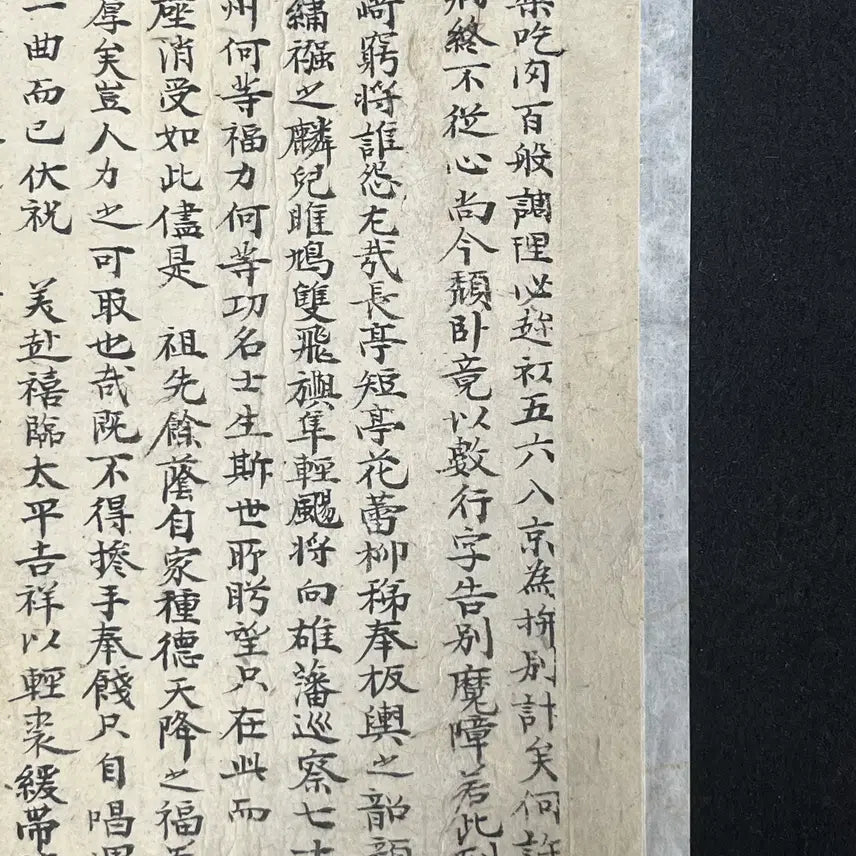 吃肉百般調理必趁初五六入京為拚別計矣何許
終不從心尚今頹臥竟以數行字告別魔障若此
崎窮將誰怨尤哉長亭短亭花蕾柳稊奉板輿之韶
繡襁之麟兒雎鳩雙飛旟隼輕颺將向雄藩巡察七十
州何等福力何等功名士生斯世所盻望只在此而
座消受如此儘是 祖先餘蔭自家種德天降之福
厚矣豈人力之可取也哉既不得摻手奉餞只自唱
一曲而已伏祝 美赴禧臨太平吉祥以輕裘緩帶